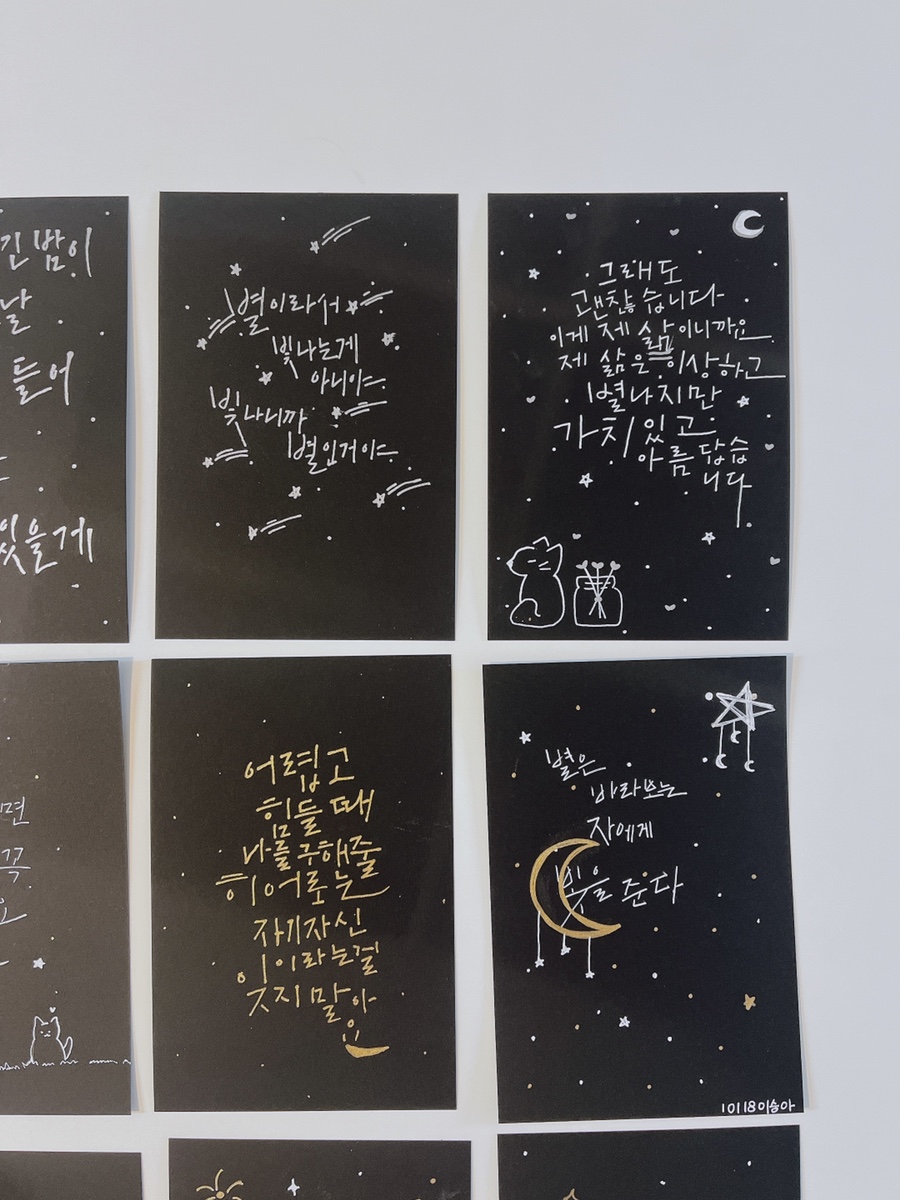 긴 밤이
날
들어
있을게
별이라서
빛나는게
아니야
빛나니까
별인거야
그래도
괜찮습니다
이게 제 삶이니까요
제 삶은 이상하고
별나지만
가치있고
아름답습
니다
면
꼭
어렵고
힘들 때
나를 구해줄
히어로는
자기자신
이라는걸
잊지 말아
요
별은
바라보는
자에게
빛을 준다
10118이승아